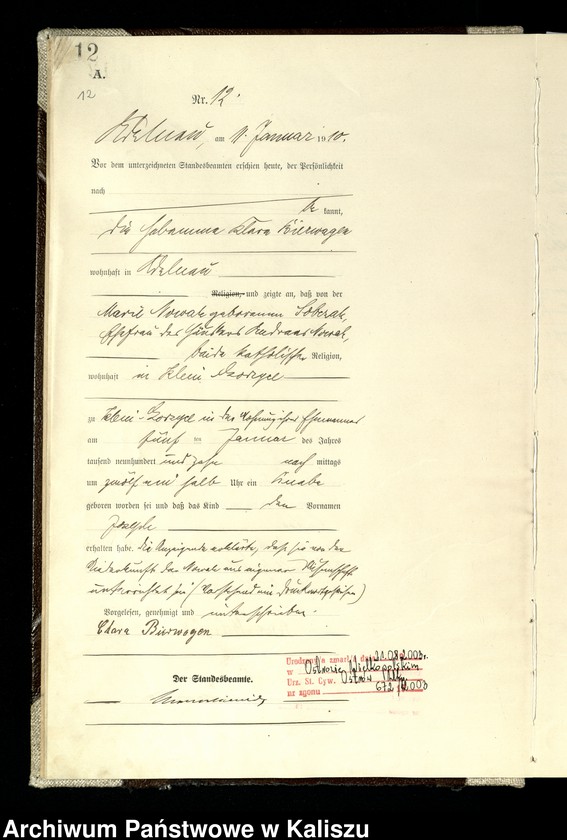 12
A.
12
Nr. 12.
Adelnau, am 11. Januar 1910.
Vor dem unterzeichneten Standesbeamten erschien heute, der Persönlichkeit
nach
be kannt,
die Hebamme Klara Bierwagen
wohnhaft in Adelnau
Religion, und zeigte an, daß von der
Marie Nowak geborenen Sobczak,
Ehefrau des Häuslers Andreas Nowak,
beide katholischer Religion,
wohnhaft in Klein Gorzyce
zu Klein-Gorzyce in der Wohnung ihres Ehemannes
am fünften Januar des Jahres
tausend neunhundert und zehn nach mittags
um zwölf ein halb Uhr ein Knabe
geboren worden sei und daß das Kind den Vornamen
Joseph
erhalten habe. Die Anzeigende erklärte, daß sie von der
Niederkunft der Nowak aus eigener Wissenschaft
unterrichtet sei (Vorstehend ein Druckwort gestrichen)
Vorgelesen, genehmigt und unterschrieben.
Clara Bierwagen
Der Standesbeamte.
Urodzony/a zmarł/a dnia 21.08.2003r.
w Ostrowie Wielkopolskim
Urz. St. Cyw. Ostrów Wlkp.
nr zgonu 672/2003
Archiwum Państwowe w Kaliszu